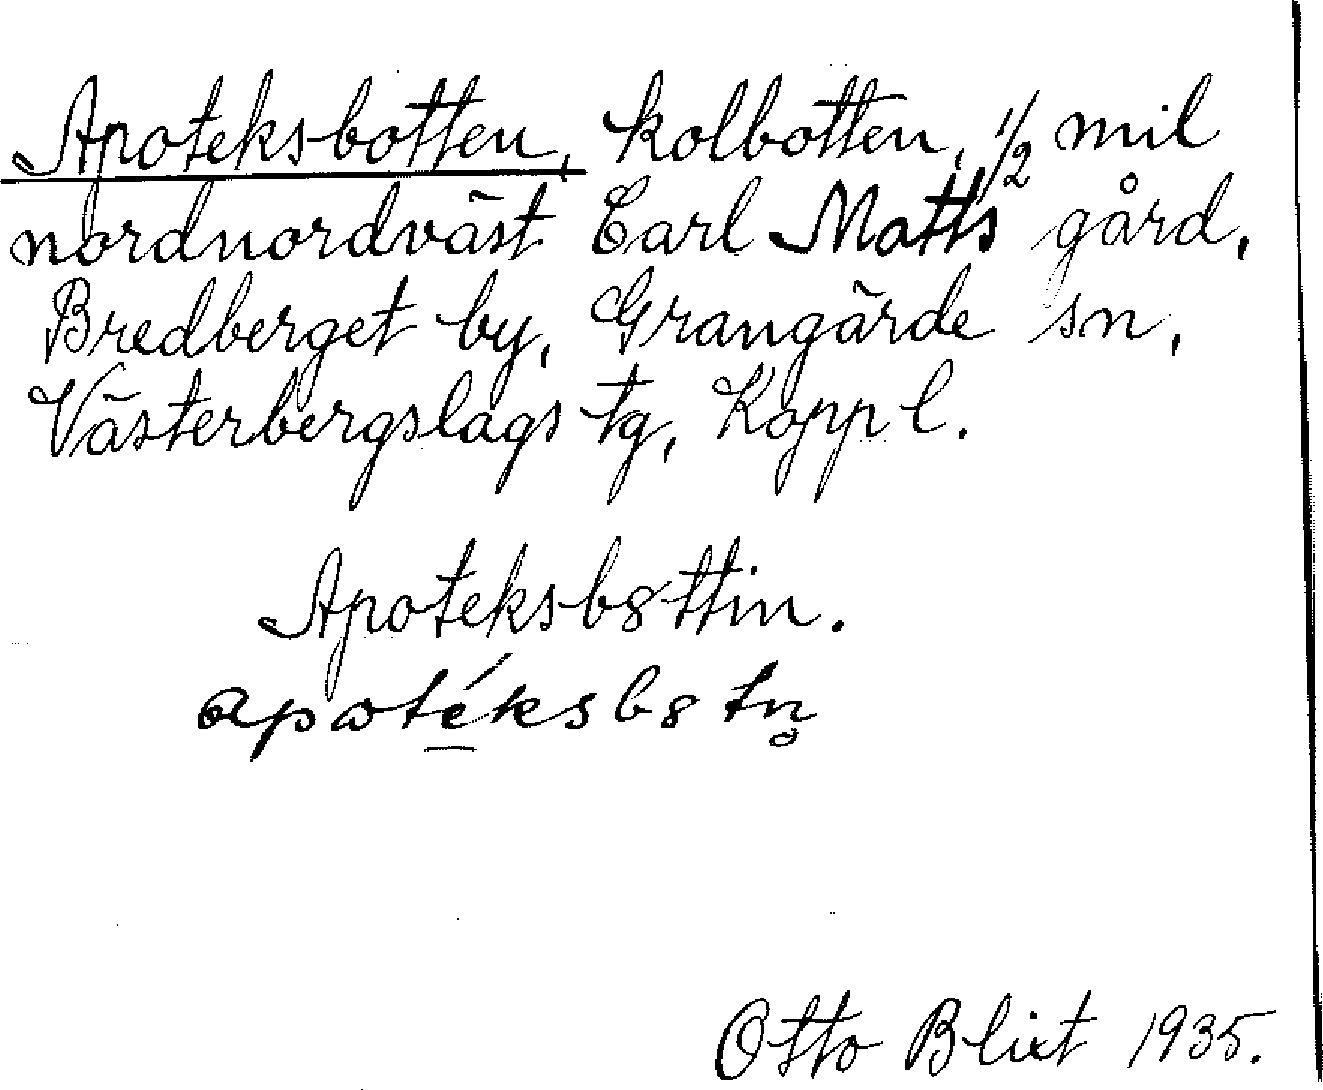 Apoteksbotten, kolbotten, 1/2 mil
nordnordväst Carl Matts gård,
Bredberget by, Grangärde sn,
Västerbergslags tg, Kopp l.
Apoteksb8ttin.
apotéksb8tn̥
Otto Blixt 1935.